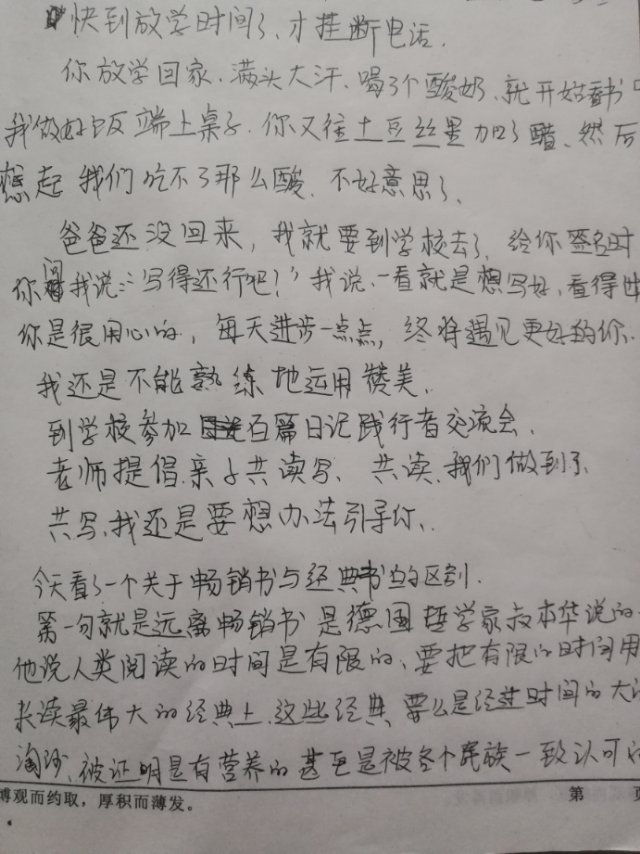 快到放学时间了、才挂断电话.
你放学回家.满头大汗、喝了个酸奶、就开始看书
我做好饭端上桌子.你又往土豆丝里加了醋、然后
想起我们吃不了那么酸、不好意思了、
爸爸还没回来，我就要到学校去了、给你签名时
你问我说:“写得还行吧?”我说、一看就是想写好、看得出
你是很用心的，每天进步一点点，终将遇见更好的你.
我还是不能熟练地运用赞美.
到学校参加百篇日记践行者交流会.
老师提倡亲子共读写、共读、我们做到了、
共写、我还是要想办法引导你、
今天看了一个关于畅销书与经典的区别.
第一句就是远离畅销书是德国哲学家叔本华说的.
他说人类阅读的时间是有限的、要把有限的时间用
来读最伟大的经典上.这些经典要么是经过时间的大浪
淘沙、被证明是有营养的甚至是被各个民族一致认可的
博观而约取，厚积而薄发。
第 页